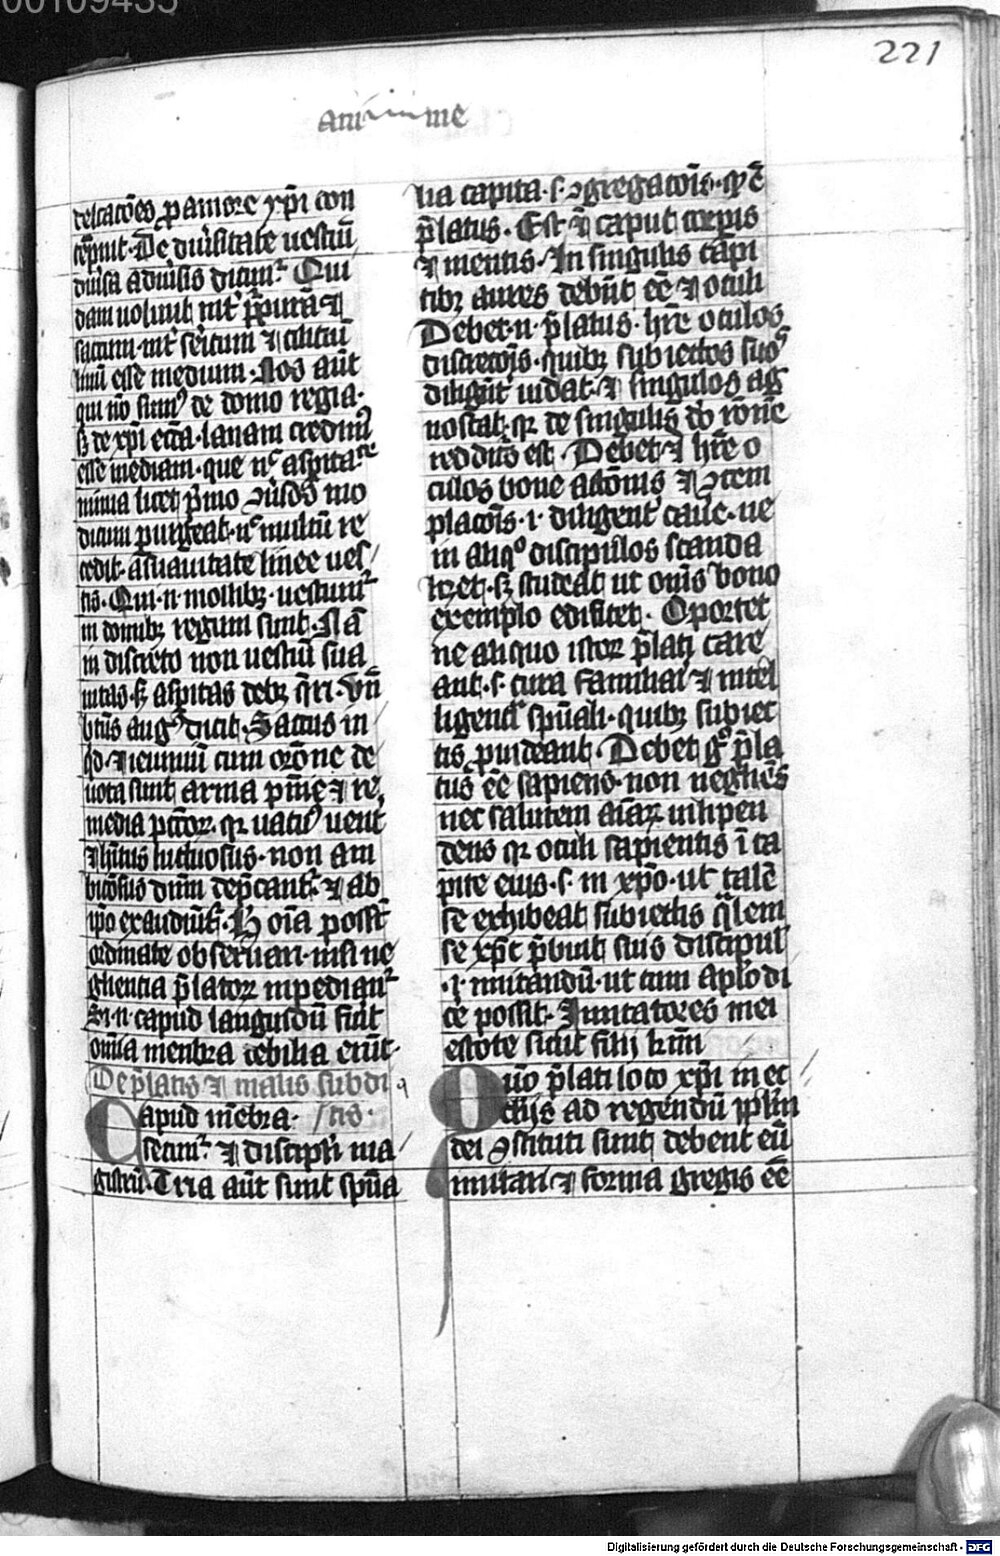 00109435
221
ani me
delcatões ꝓ amore xp̄i con
tēpnit. De diu͛sitate uestiū
diu͛sa a diu͛sis dicunt͛. Qui
dam uolunt int͛ pp̄uram ⁊
saccum int͛ sericum ⁊ ciliciū
linū esse medium. Nos aūt
qui nō sumꝰ de domo regia.
sꝫ de xp̄i ecc̄a. lanam credimꝰ
esse mediam. que n͛ aspitate
nimia licet p̄mo
dicum purgeat. n͛ multū re
cedit. a suauitate linee ues/
tis. Qui .n. mollibꝫ uestiunt͛
in domibꝫ regum sunt. Nā
in discreto non uestiū sua
uitas sꝫ aspitas debꝫ q̄ri. Vn̄
b̄tus augꝰ dicit. Saccus in
qͦ. ⁊ ieiuniū cum or̄one de
uota sunt arma pn̄ie ⁊ re
media pcc̄oꝝ. qꝛ uent
luctuosus. non am
biciosus dūm dep̄cant͛. ⁊ ab
ip̄o exaudiūt͛. H oīa possēt
ordinate obseruari. nisi ne
gligentia p̄latoꝝ inpediant͛
Si .n. capud languidū fuīt
om̄ia menbra debilia erūt.
De p̄latis ⁊ malis subdi
Capud mēbra. /tis.
secunt͛. ⁊ discipli ma/
gistrū. Tria aūt sunt sp̄ua
lia capita .s. ꝯgregacōis. qͦ ē
p̄latus. Est ⁊ caput corpis
⁊ mentis. In singulis capi
tibꝫ aures debn̄t ēē ⁊ oculi
Debet .n. p̄latus. hr̄e oculos
discrecōis. quibꝫ subiectos suos
diligēt͛ uideat. ⁊ singulos ag
noscat. qꝛ de singulis dō ronē
redditurꝰ est. Debet ⁊ hr̄e o
culos bone accōnis ⁊ ꝯtem
placōis .i. diligent͛ caue. ne
in aliqͦ discipulos scanda
lizet. sꝫ studeat ut om̄is bono
exemplo edificet. Oportet
ne aliquo istoꝝ p̄lati care
ant. s. cura familiari ⁊ intel
ligencia spūali. quibꝫ subiec
tis puideant. Debet gͦ p̄la
tus ēē sapiens. non negliḡes
nec salutem aīaꝝ uilipen
dens qꝛ oculi sapientis ī ca
pite eius .s. in xp̄o. ut talē
se exhibeat subiectis q̄lem
se xp̄c p̄buit suis discipulis
ad imitandū. ut cum Aplo di
ce possit. Imitatores mei
estote sicut filij kmi
Quō p̄lati loco xp̄i in ec
clijs ad regendū pplm
dei ꝯstituti sunt debent eū
imitari ⁊ forma gregis ēē
Digitalisierung gefördert durch die Deutsche Forschungsgemeinschaft - DFG